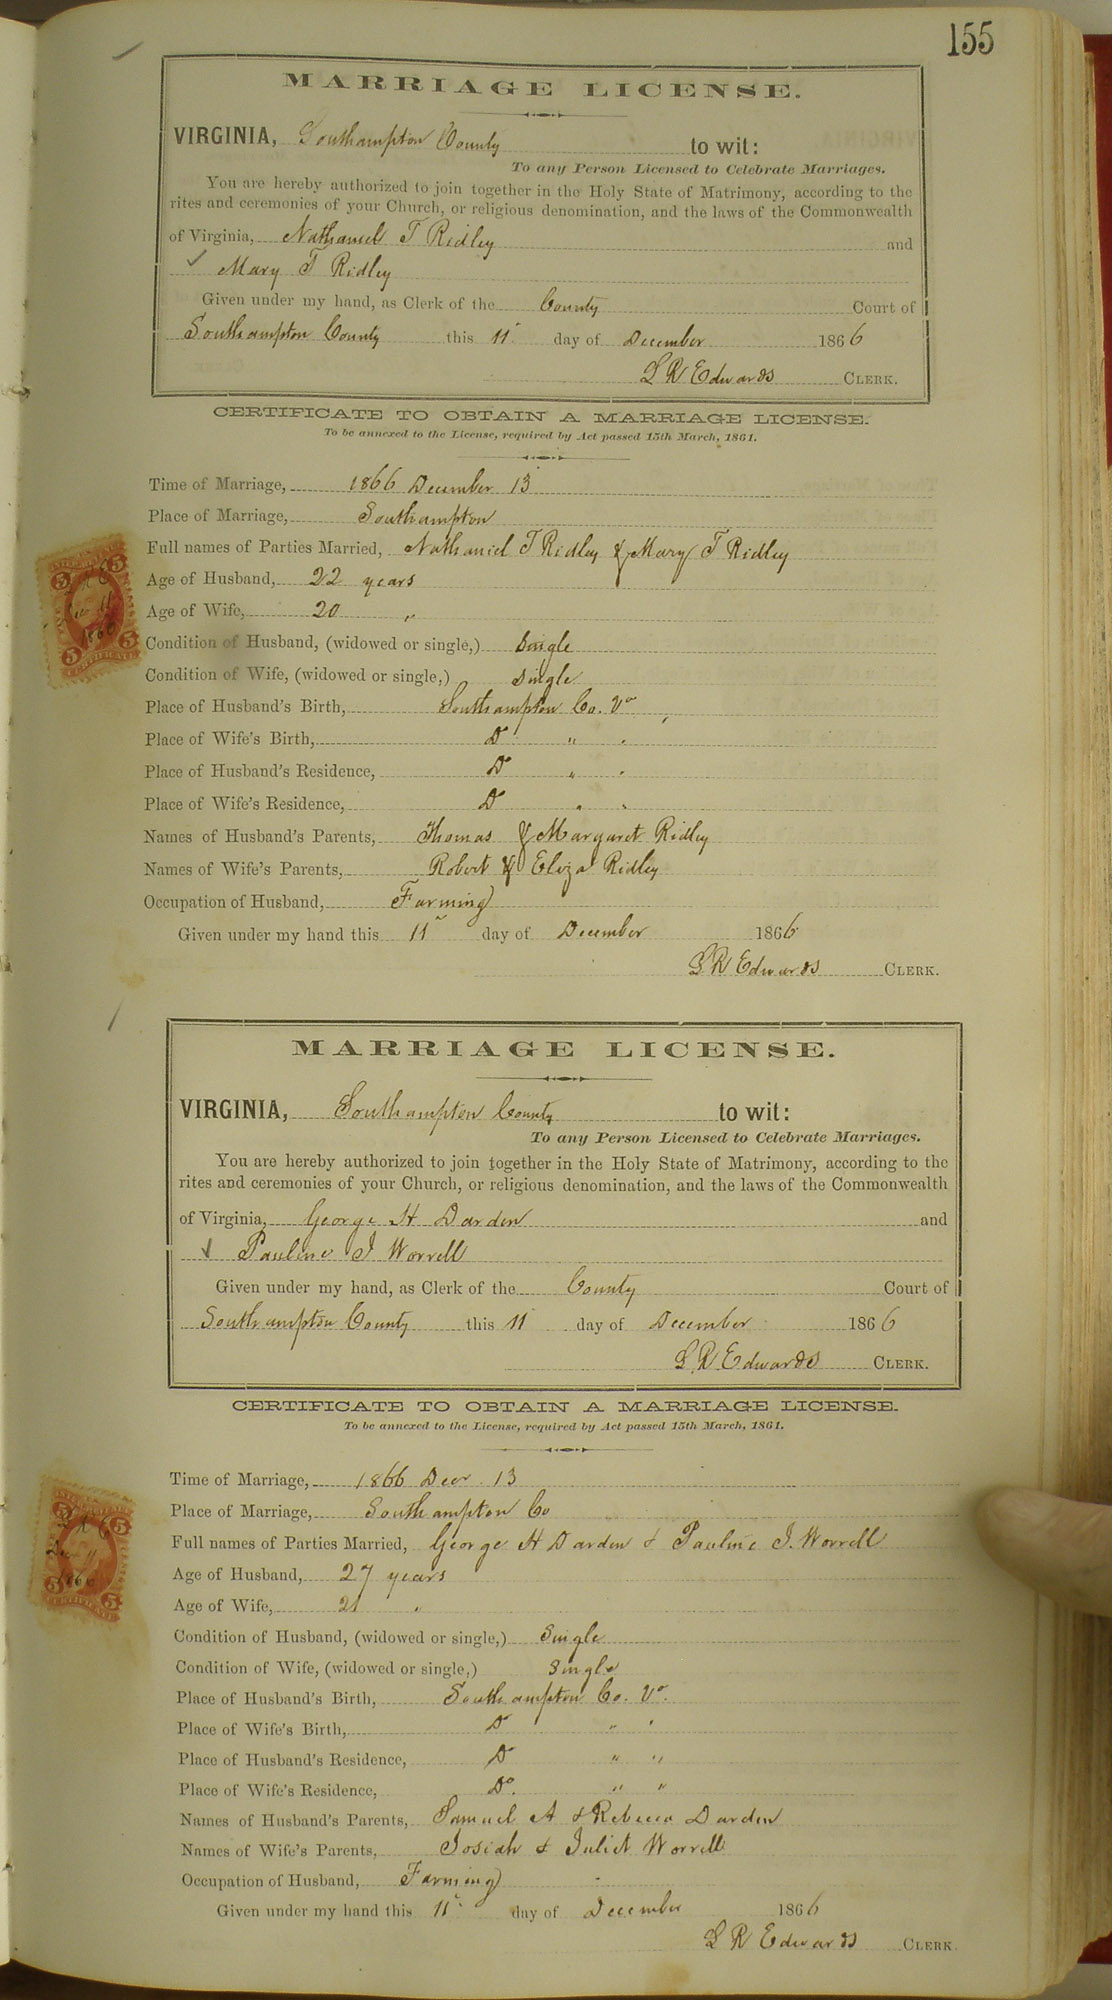 155
MARRIAGE LICENSE.
VIRGINIA, Southampton County to wit:
To any Person Licensed to Celebrate Marriages.
You are hereby authorized to join together in the Holy State of Matrimony, according to the
rites and ceremonies of your Church, or religious denomination, and the laws of the Commonwealth
of Virginia, Nathaniel T Ridley and
✓ Mary T Ridley
Given under my hand, as Clerk of the County Court of
Southampton County this 11 day of December 1866
L R Edwards CLERK.
CERTIFICATE TO OBTAIN A MARRIAGE LICENSE.
To be annexed to the License, required by Act passed 15th March, 1861.
Time of Marriage, 1866 December 13
Place of Marriage, Southampton
Full names of Parties Married, Nathaniel T Ridley & Mary T Ridley
Age of Husband, 22 years
Age of Wife, 20 "
Condition of Husband, (widowed or single,) Single
Condition of Wife, (widowed or single,) Single
Place of Husband's Birth, Southampton Co. Va
Place of Wife's Birth, Do " "
Place of Husband's Residence, Do " "
Place of Wife's Residence, Do " "
Names of Husband's Parents, Thomas & Margaret Ridley
Names of Wife's Parents, Robert & Eliza Ridley
Occupation of Husband, Farming
Given under my hand this 11 day of December 1866
L R Edwards CLERK.
5 5
L R E
Dec 11
1866
5 5
CERTIFICATE
MARRIAGE LICENSE.
VIRGINIA, Southampton County to wit:
To any Person Licensed to Celebrate Marriages.
You are hereby authorized to join together in the Holy State of Matrimony, according to the
rites and ceremonies of your Church, or religious denomination, and the laws of the Commonwealth
of Virginia, George H Darden and
✓ Pauline J Worrell
Given under my hand, as Clerk of the County Court of
Southampton County this 11 day of December 1866
L R Edwards CLERK.
CERTIFICATE TO OBTAIN A MARRIAGE LICENSE.
To be annexed to the License, required by Act passed 15th March, 1861.
Time of Marriage, 1866 Decr 13
Place of Marriage, Southampton Co
Full names of Parties Married, George H Darden & Pauline J. Worrell
Age of Husband, 27 years
Age of Wife, 21 "
Condition of Husband, (widowed or single,) Single
Condition of Wife, (widowed or single,) Single
Place of Husband's Birth, Southampton Co. Va.
Place of Wife's Birth, Do " "
Place of Husband's Residence, Do " "
Place of Wife's Residence, Do. " "
Names of Husband's Parents, Samuel A & Rebecca Darden
Names of Wife's Parents, Josiah & Juliet Worrell
Occupation of Husband, Farming
Given under my hand this 11 day of December 1866
L R Edwards CLERK.
5 5
L R E
Dec 11
1866
5 5
CERTIFICATE